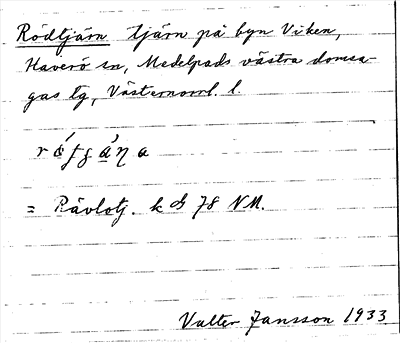 Rödtjärn tjärn på byn Viken,
Haverö sn, Medelpads västra domsa-
gas tg, Västernorrl. l.
= Rävlotj. k bl 78 NM.
Valter Jansson 1933